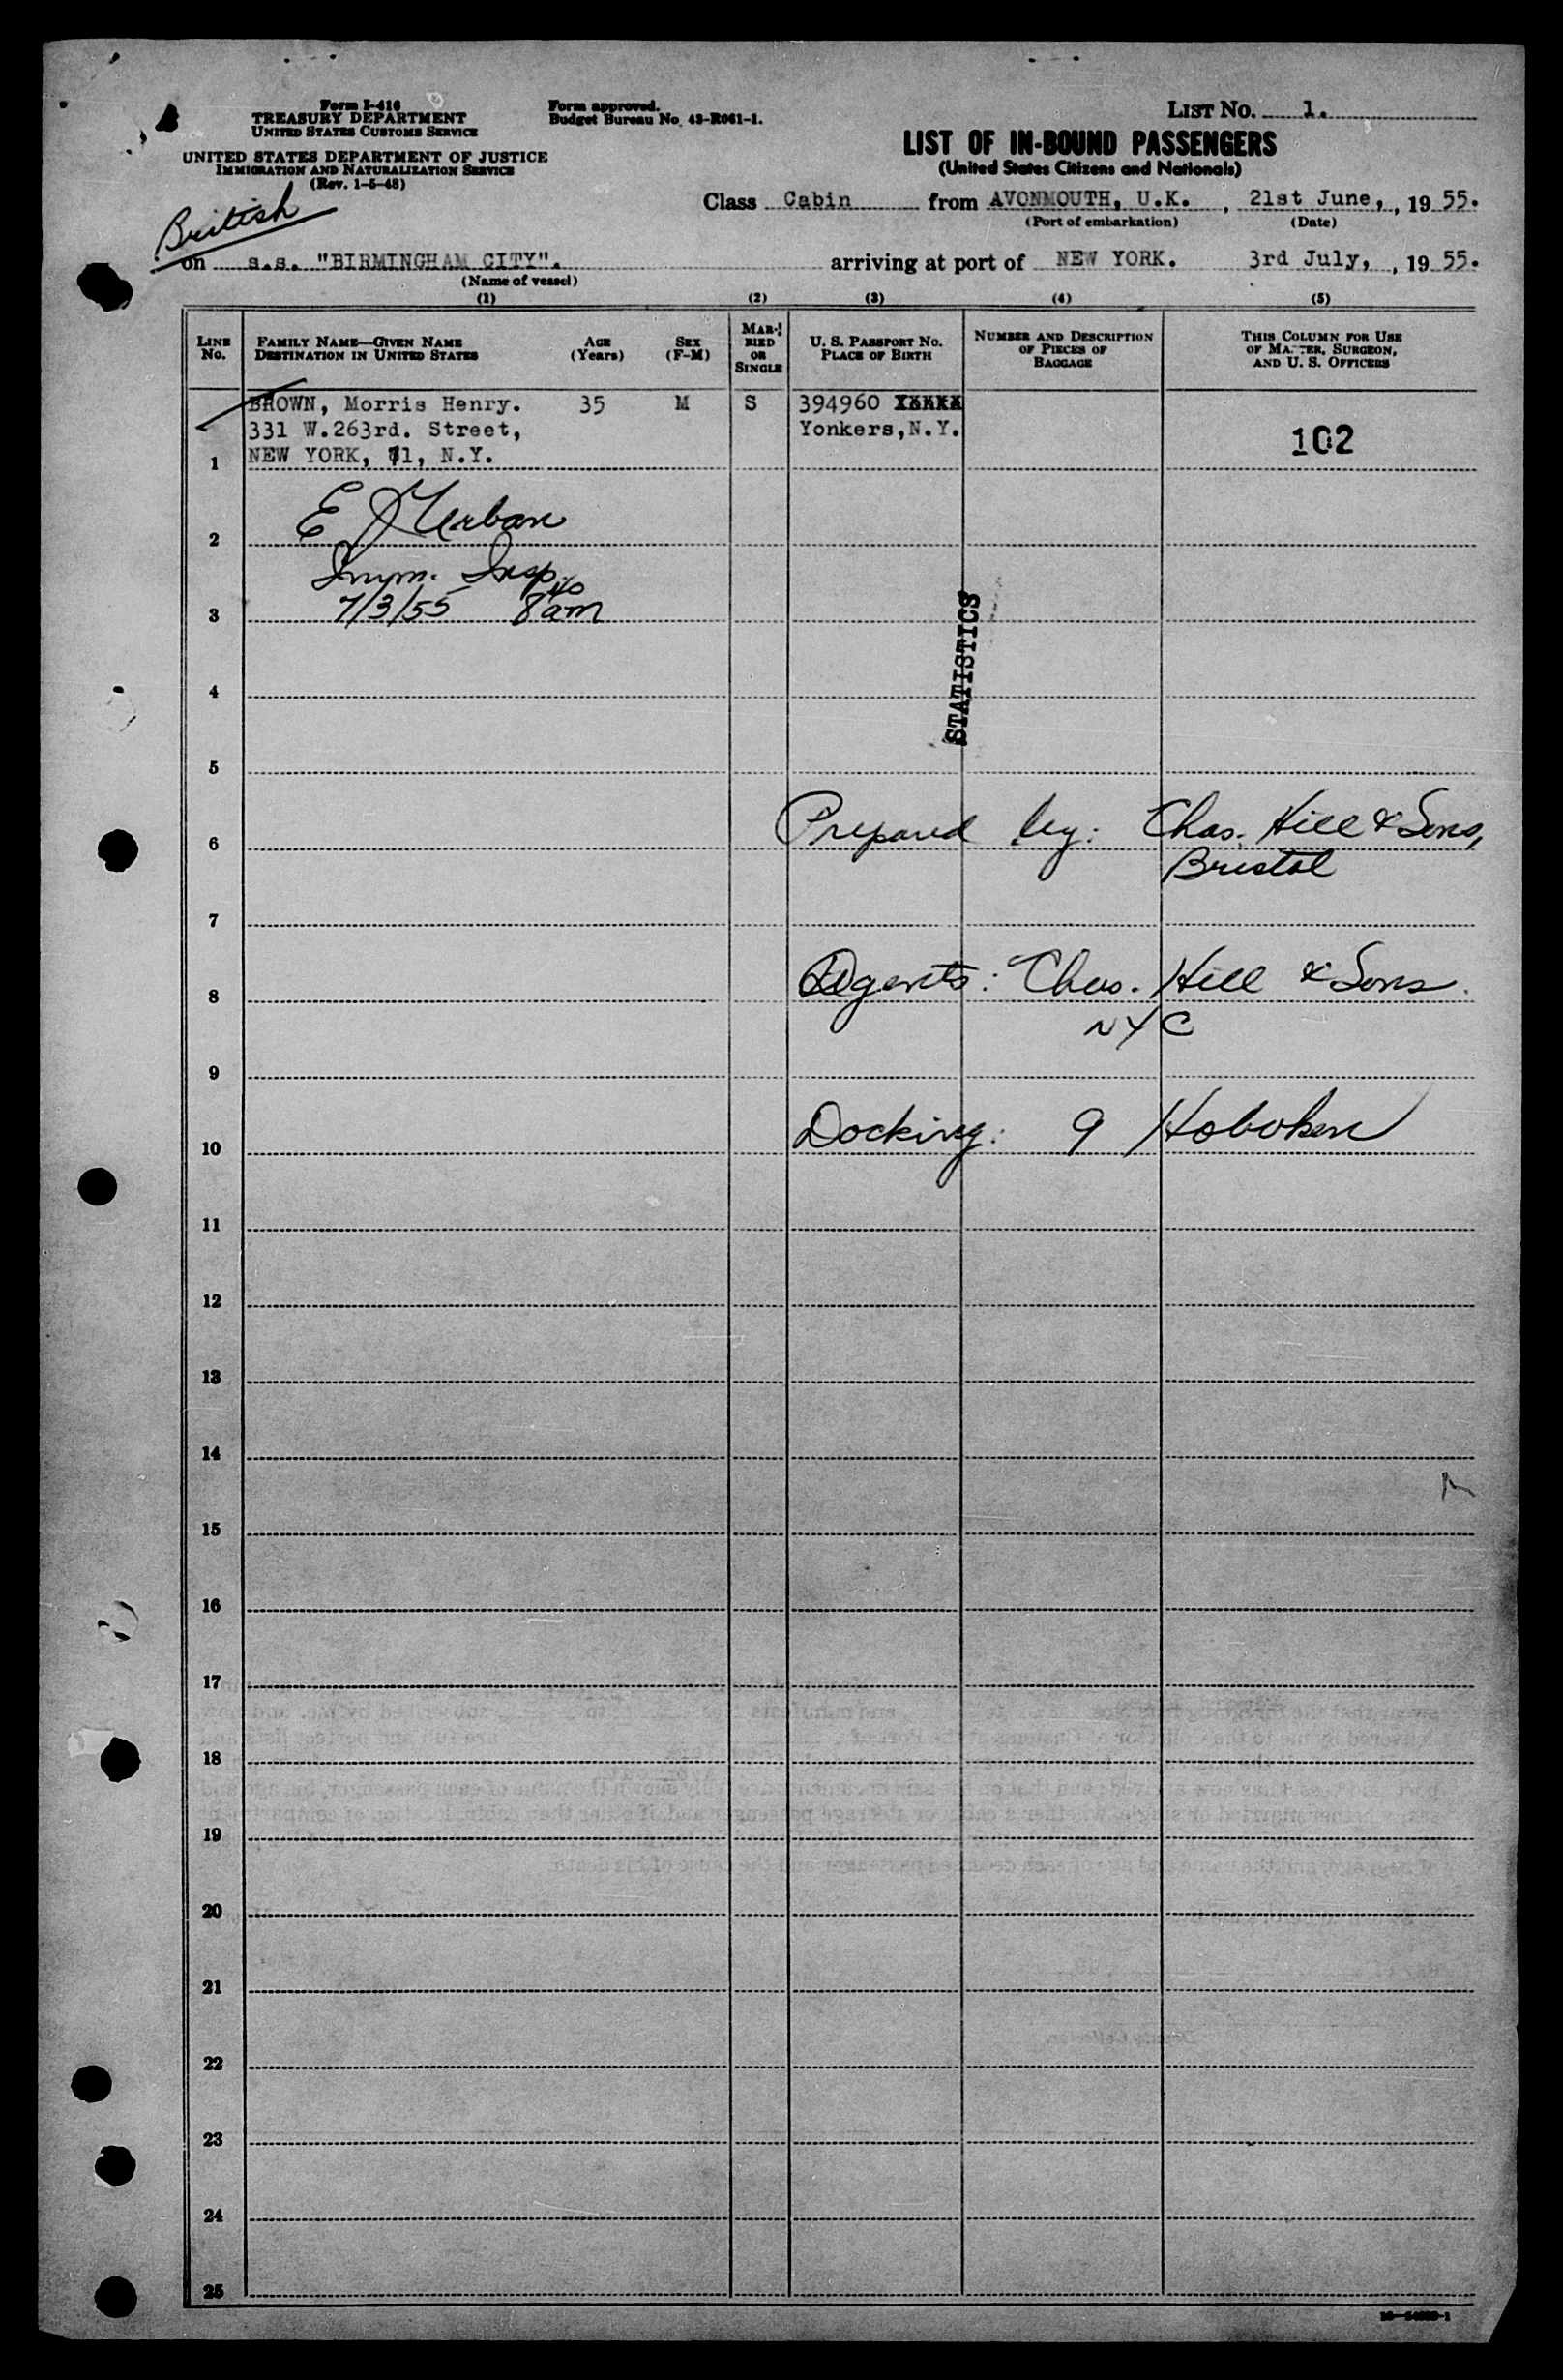 Form I-416
TREASURY DEPARTMENT
UNITED STATES CUSTOMS SERVICE
UNITED STATES DEPARTMENT OF JUSTICE
IMMIGRATION AND NATURALIZATION SERVICE
(Rev. 1-5-48)
Form approved.
Budget Bureau No. 43-R061-1.
LIST No. 1.
LIST OF IN-BOUND PASSENGERS
(United States Citizens and Nationals)
British
Class Cabin from AVONMOUTH, U.K., 21st June, , 19 55.
(Port of embarkation) (Date)
on s.s. "BIRMINGHAM CITY". arriving at port of NEW YORK. 3rd July, , 19 55.
(Name of vessel)
(1) (2) (3) (4) (5)
LINE No. FAMILY NAME—GIVEN NAME DESTINATION IN UNITED STATES AGE (Years) SEX (F-M) MARRIED OR SINGLE U. S. PASSPORT NO. PLACE OF BIRTH NUMBER AND DESCRIPTION OF PIECES OF BAGGAGE THIS COLUMN FOR USE OF MASTER, SURGEON, AND U. S. OFFICERS
BROWN, Morris Henry. 35 M S 394960 XXXXX
331 W.263rd. Street, Yonkers, N.Y.
1 NEW YORK, 71, N.Y. 102
2 E Urban
Imm. Insp.
3 7/3/55 8 am
STATISTICS
4
5
6 Prepared by: Chas. Hill & Sons,
Bristol
7
8 Agents: Chas. Hill & Sons.
NYC
9
10 Docking: 9 Hoboken
11
12
13
14
15
16
17
18
19
20
21
22
23
24
25